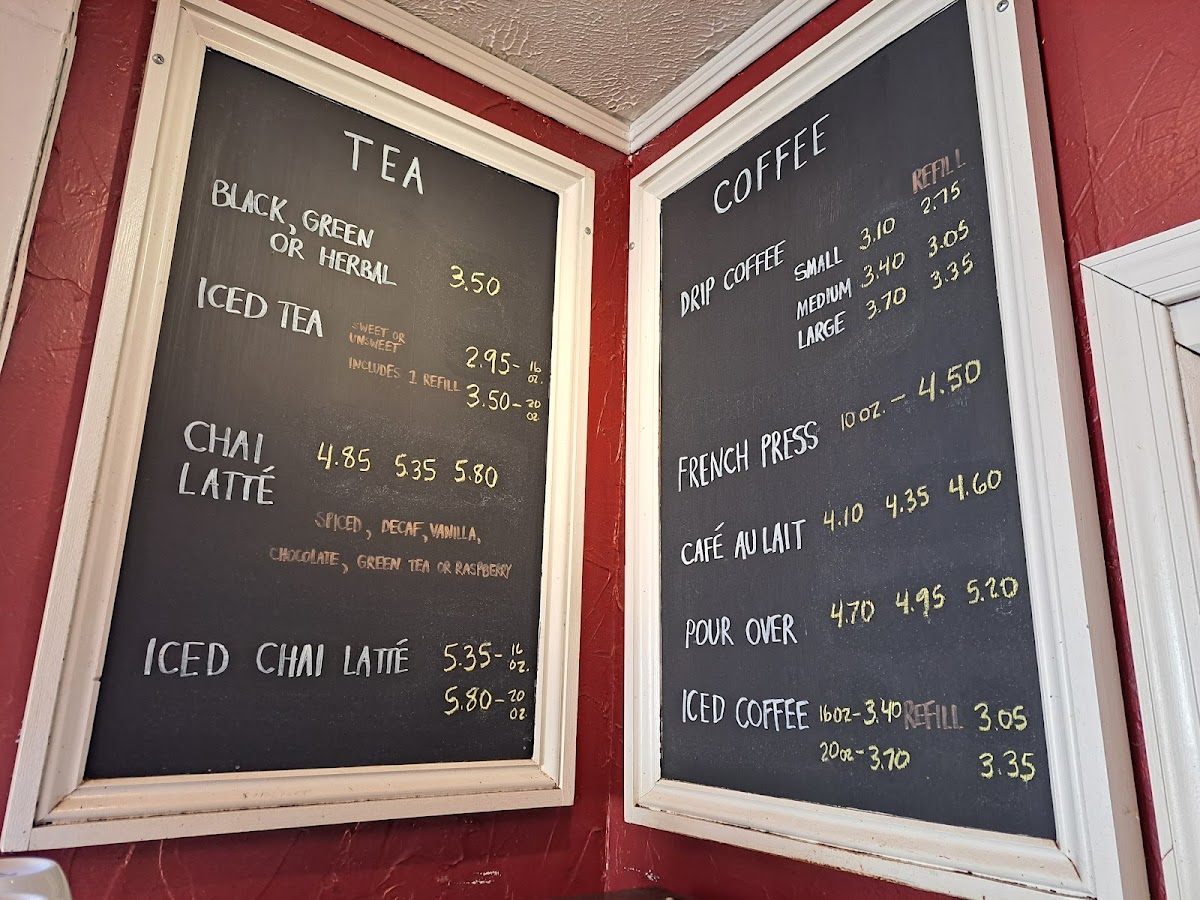 TEA
BLACK, GREEN
OR HERBAL 3.50
ICED TEA SWEET OR
UNSWEET
2.95- 16 oz.
INCLUDES 1 REFILL 3.50- 20 oz
CHAI
LATTÉ 4.85 5.35 5.80
SPICED, DECAF, VANILLA,
CHOCOLATE, GREEN TEA OR RASPBERRY
ICED CHAI LATTÉ 5.35- 16 oz.
5.80- 20 oz
COFFEE
REFILL
DRIP COFFEE SMALL 3.10 2.75
MEDIUM 3.40 3.05
LARGE 3.70 3.35
FRENCH PRESS 10 oz. - 4.50
CAFÉ AU LAIT 4.10 4.35 4.60
POUR OVER 4.70 4.95 5.20
ICED COFFEE 16oz-3.40 REFILL 3.05
20oz-3.70 3.35